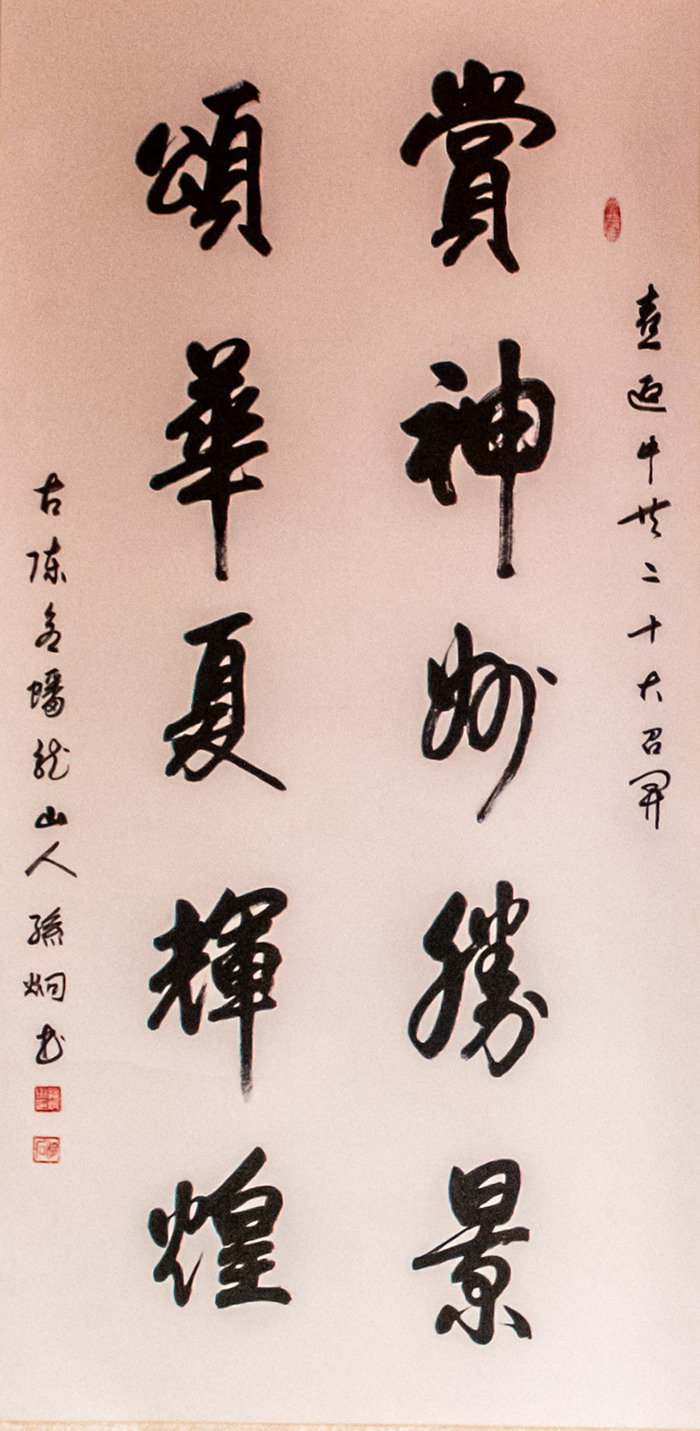 喜迎中共二十大召開
賞神州勝景
頌華夏輝煌
古陳蟠龍山人孫炯書